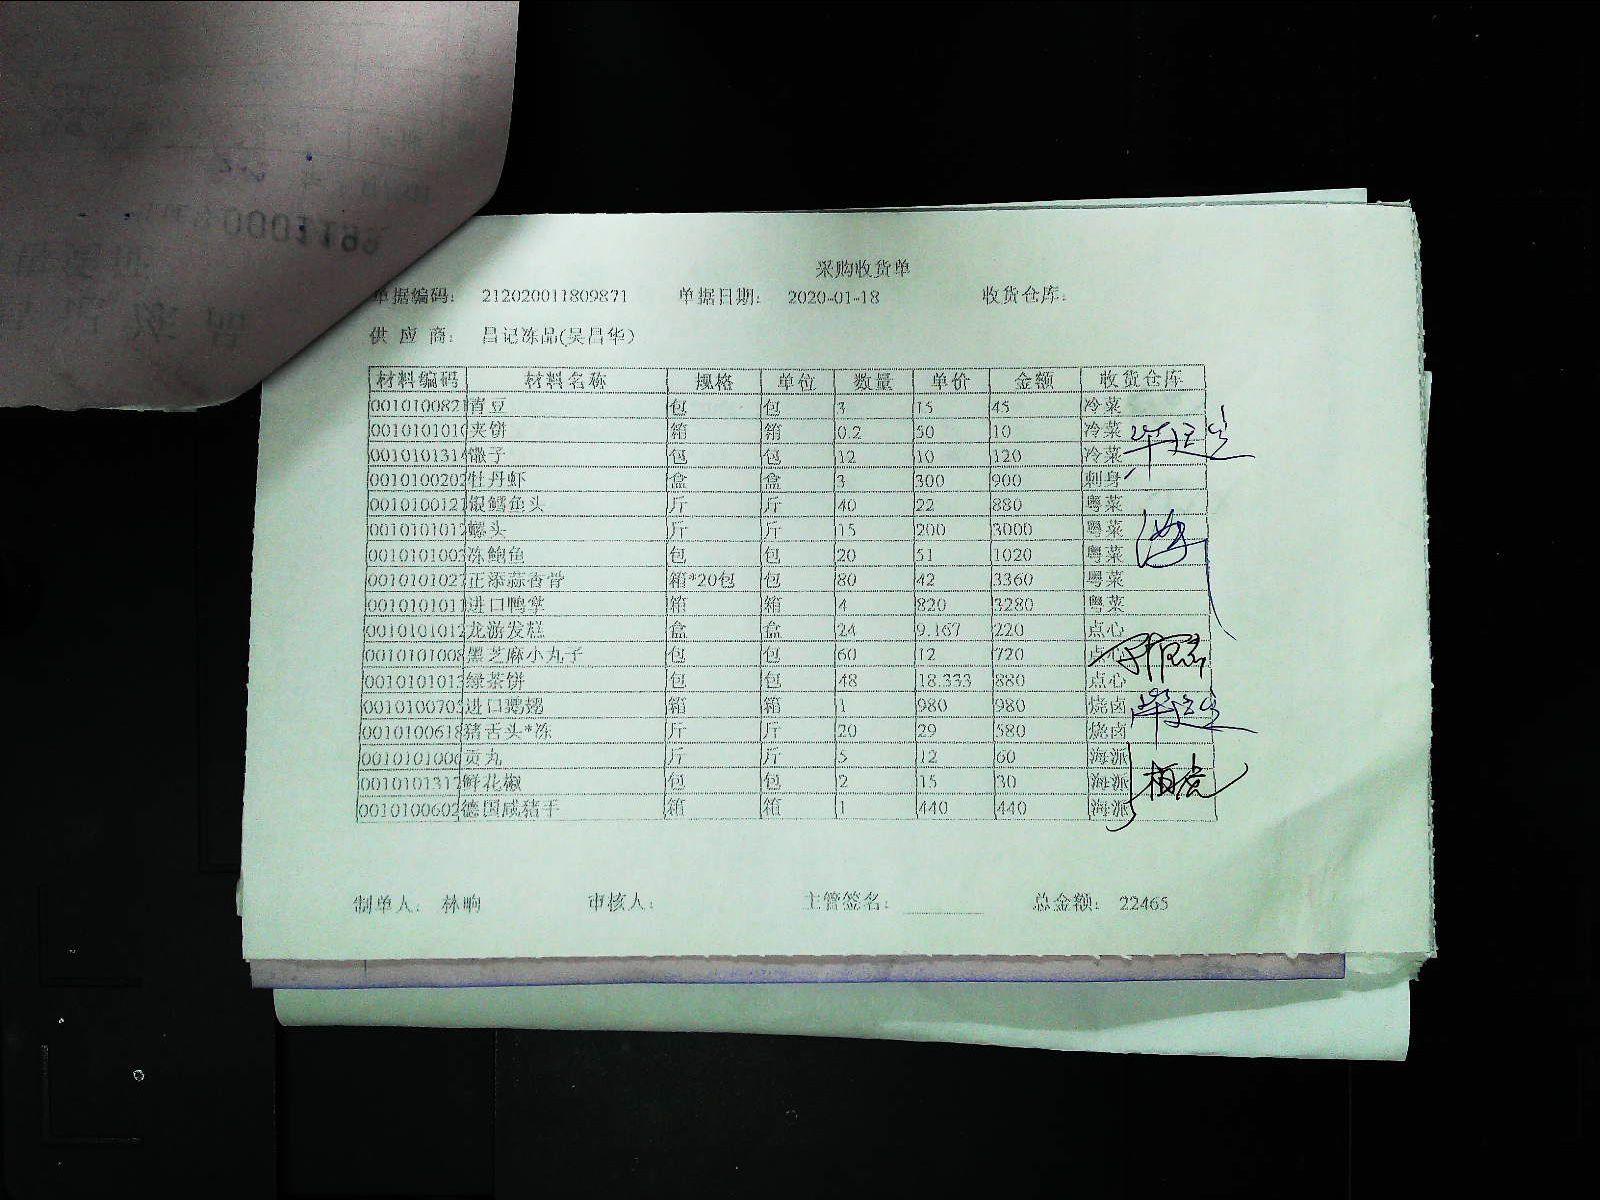 采购收货单
单据编码： 212020011809871 单据日期： 2020-01-18 收货仓库：
供 应 商： 昌记冻品(吴昌华)
材料编码 材料名称 规格 单位 数量 单价 金额 收货仓库
0010100821 青豆 包 包 3 15 45 冷菜
0010101010 夹饼 箱 箱 0.2 50 10 冷菜
0010101314 馓子 包 包 12 10 120 冷菜
0010100202 牡丹虾 盒 盒 3 300 900 刺身
0010100121 银鳕鱼头 斤 斤 40 22 880 粤菜
0010101012 螺头 斤 斤 15 200 3000 粤菜
0010101003 冻鲍鱼 包 包 20 51 1020 粤菜
0010101027 正添蒜香骨 箱*20包 包 80 42 3360 粤菜
0010101011 进口鸭掌 箱 箱 4 820 3280 粤菜
0010101012 龙游发糕 盒 盒 24 9.167 220 点心
0010101008 黑芝麻小丸子 包 包 60 12 720 点心
0010101013 绿茶饼 包 包 48 18.333 880 点心
0010100705 进口鹅翅 箱 箱 1 980 980 烧卤
0010100618 猪舌头*冻 斤 斤 20 29 580 烧卤
0010101006 贡丸 斤 斤 5 12 60 海派
0010101317 鲜花椒 包 包 2 15 30 海派
0010100602 德国咸猪手 箱 箱 1 440 440 海派
制单人： 林晌 审核人： 主管签名： 总金额： 22465